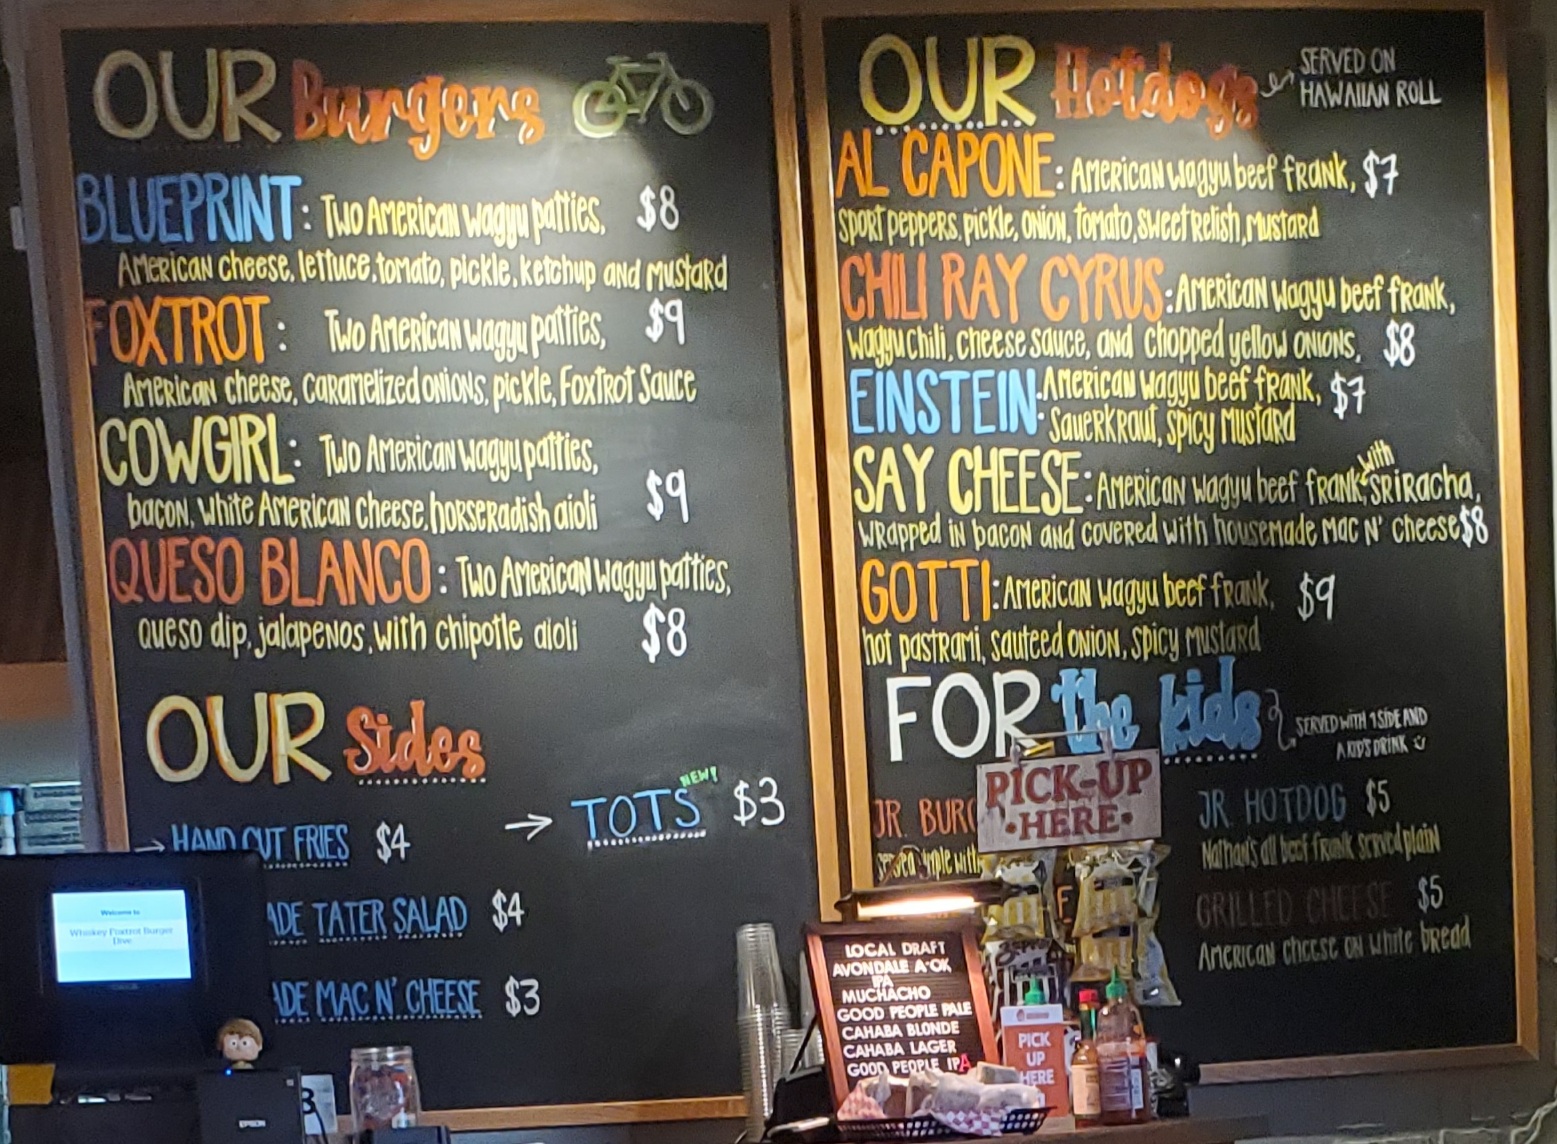 OUR Burgers
BLUEPRINT: Two American wagyu patties, $8
American cheese, lettuce, tomato, pickle, ketchup and mustard
FOXTROT: Two American wagyu patties, $9
American cheese, caramelized onions, pickle, Foxtrot Sauce
COWGIRL: Two American wagyu patties,
bacon, white American cheese, horseradish aioli $9
QUESO BLANCO: Two American wagyu patties,
queso dip, jalapenos, with chipotle aioli $8
OUR Sides
NEW!
→ TOTS $3
→ HAND CUT FRIES $4
ADE TATER SALAD $4
ADE MAC N' CHEESE $3
OUR Hotdogs
SERVED ON
HAWAIIAN ROLL
AL CAPONE: American wagyu beef frank, $7
sport peppers, pickle, onion, tomato, sweet relish, mustard
CHILI RAY CYRUS: American wagyu beef frank,
wagyu chili, cheese sauce, and chopped yellow onions, $8
EINSTEIN: American wagyu beef frank, $7
Sauerkraut, spicy mustard
SAY CHEESE: American wagyu beef frank with sriracha,
wrapped in bacon and covered with housemade mac n' cheese $8
GOTTI: American wagyu beef frank, $9
hot pastrami, sauteed onion, spicy mustard
FOR the kids
SERVED WITH 1 SIDE AND
A KID'S DRINK
JR. BURG
JR. HOTDOG $5
Nathan's all beef frank served plain
GRILLED CHEESE $5
American cheese on white bread
PICK-UP
•HERE•
LOCAL DRAFT
AVONDALE A-OK
IPA
MUCHACHO
GOOD PEOPLE PALE
CAHABA BLONDE
CAHABA LAGER
GOOD PEOPLE IPA
PICK
UP
HERE
Welcome to
Whiskey Foxtrot Burger
Dive
EPSON